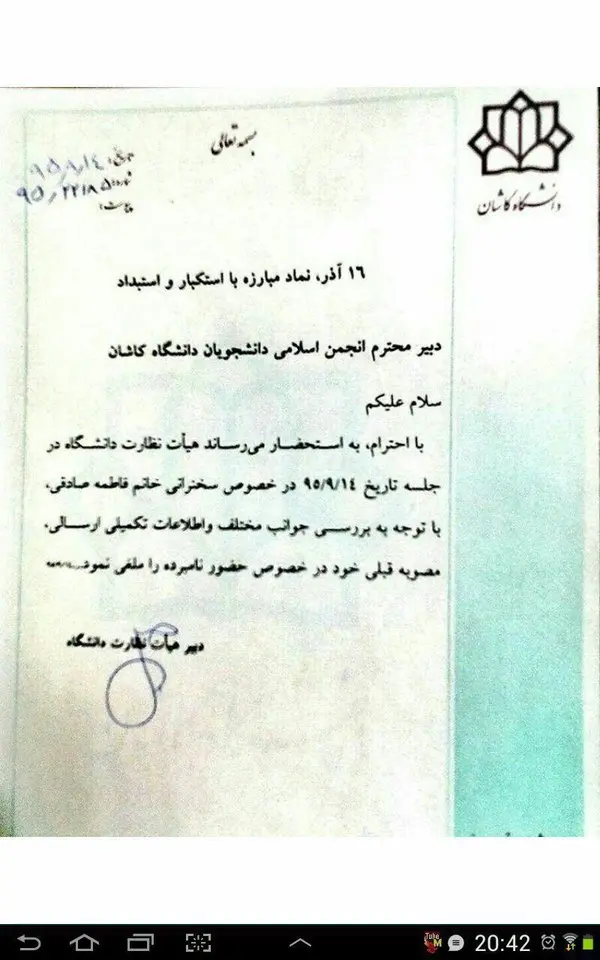 دانشگاه کاشان
بسمه تعالی
تاریخ:
شماره: ۹۵٫۲۲۱۸۵
پیوست:
۱۶ آذر، نماد مبارزه با استکبار و استبداد
دبیر محترم انجمن اسلامی دانشجویان دانشگاه کاشان
سلام علیکم
با احترام، به استحضار می‌رساند هیأت نظارت دانشگاه در
جلسه تاریخ ۹۵/۹/۱۴ در خصوص سخنرانی خانم فاطمه صادقی،
با توجه به بررسی جوانب مختلف واطلاعات تکمیلی ارسالی،
مصوبه قبلی خود در خصوص حضور نامبرده را ملغی نمود.
دبیر هیأت نظارت دانشگاه
20:42